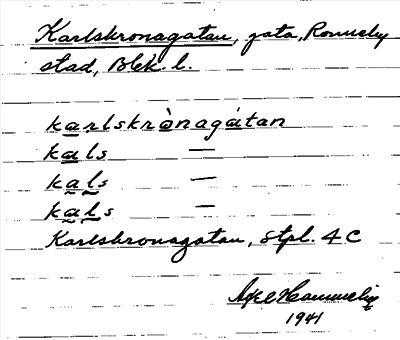 Karlskronagatan, gata, Ronneby
stad, Blek. l.
karlskrònagatan
kals —
kals —
kals —
Karlskronagatan, stpl. 4C
Axel Hammelig
1941